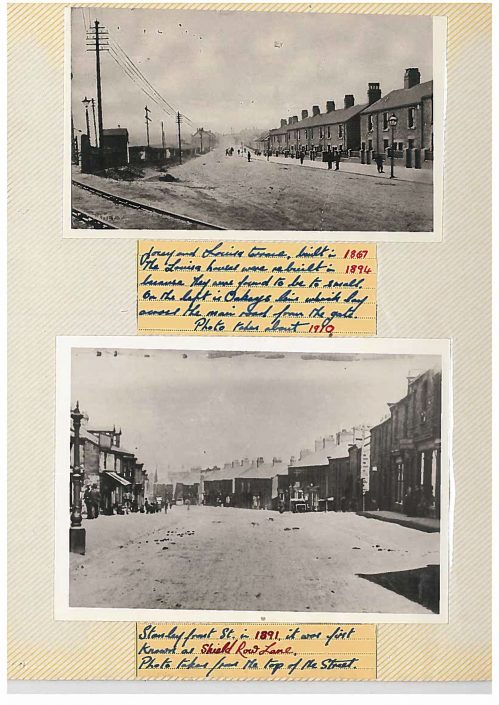 Josey and Louisa terrace, built in 1867
The Louisa houses were rebuilt in 1894
because they were found to be to small.
On the left is Oakeys line which lay
across the main road from the gate.
Photo taken about 1910
Stanley front St. in 1891, it was first
known as Shield Row Lane.
Photo taken from the top of the Street.